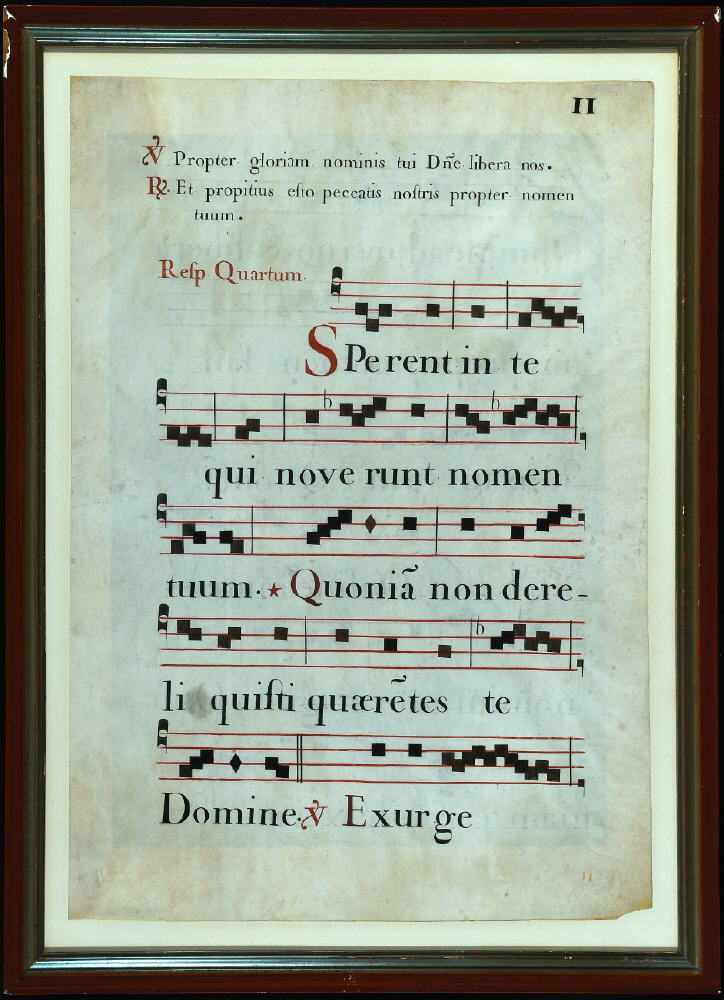 II
℣ Propter gloriam nominis tui Dn̄e libera nos.
℟. Et propitius eſto peccatis noſtris propter nomen
tuum.
Reſp Quartum.
SPerent in te
qui nove runt nomen
tuum. ★ Quoniã non dere-
li quiſti quærẽtes te
Domine. ℣ Exurge